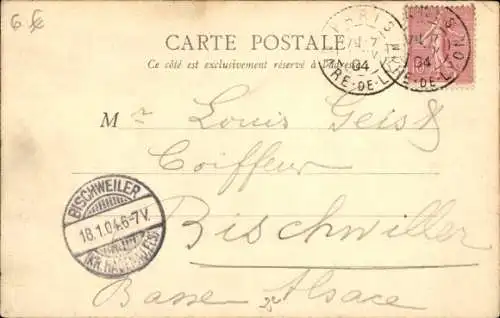 CARTE POSTALE
Ce côté est exclusivement réservé à l'adresse
PARIS
04
GARE-DE-LYON
PARIS
04
GARE-DE-LYON
Mr Louis Geist
Coiffeur
Bischwiller
Basse Alsace
BISCHWEILER
18.1.04.6-7V.
(KR. HAGENAU ELS)